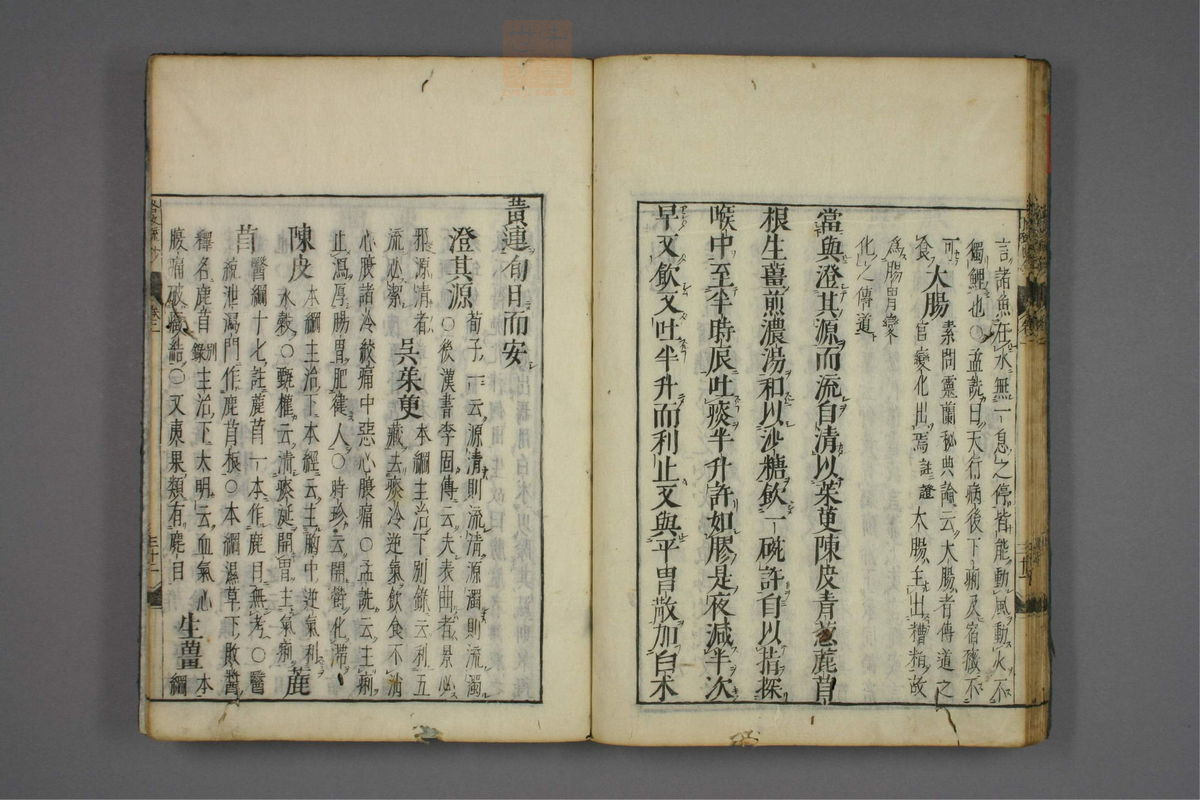 言諸魚在水無一息之停皆能動風動火不
獨鯉也○孟詵曰天行病後下痢及宿癥不
可食
大腸
素問靈蘭秘典論云大腸者傳道之
官變化出焉註證大腸主出糟粕故
為腸胃變
化之傳道
當與澄其源而流自清以茱萸陳皮青葱蔍苜
根生薑煎濃湯和以沙糖飲一碗許自以指探
喉中至半時辰吐痰半升許如膠是夜減半次
早又飲又吐半升而利止又與平胃散加白朮
黃連旬日而安
澄其源
荀子云源清則流清源濁則流濁
○後漢書李固傳云夫表曲者景必
邪源清者
流必絜
吳茱萸
本綱主治下別錄云利五
藏去痰冷逆氣飲食不消
心腹諸冷絞痛中惡心腹痛○孟詵云主痢
止瀉厚腸胃肥健人○時珍云開鬱化滯
陳皮
本綱主治下本經云主胸中逆氣利
水穀○甄權云清痰涎開胃主氣痢
蔍苜
醫綱十七註蔍苜一本作鹿目無考○醫
統泄瀉門作鹿苜根○本綱濕草下敗醬
釋名鹿首別錄主治下大明云血氣心
腹痛破癥結○又東果類有鹿目
生薑
本綱